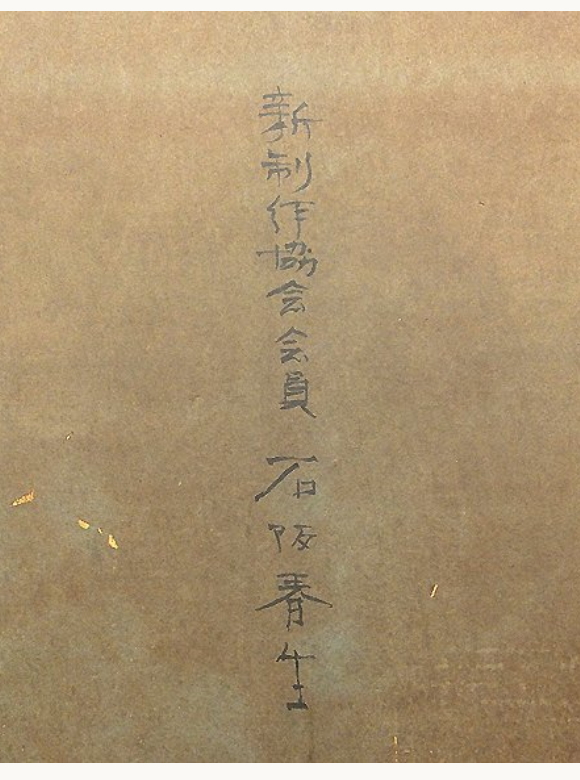 新制作協会会員 石阪春生